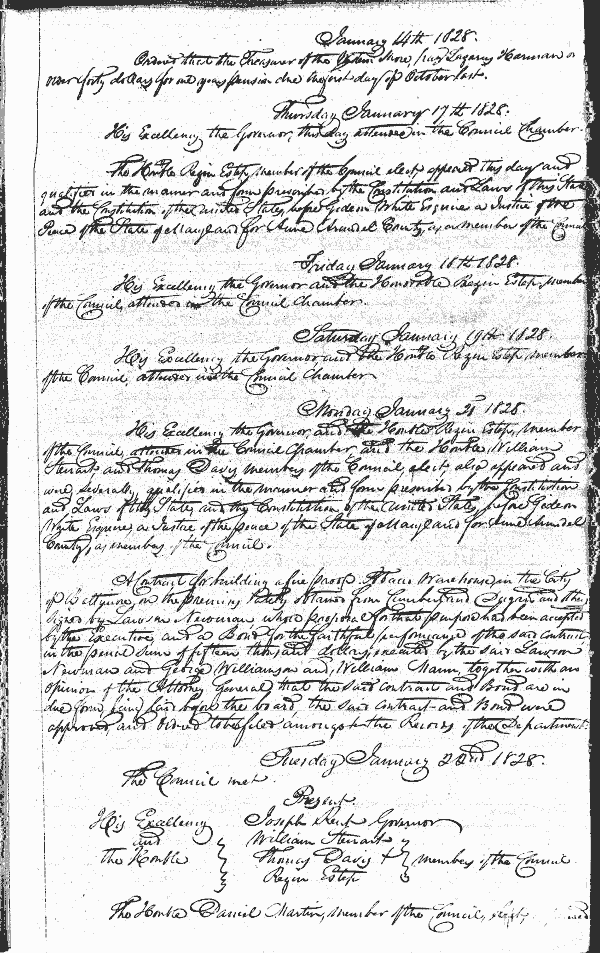 January 14th 1828.
Ordered that the Treasurer of the Western Shore, pay Lazarus Harman or
order forty dollars for one years pension due the first day of October last.
Thursday January 17th 1828.
His Excellency the Governor, this day attended in the Council Chamber.
The Honble Rezin Estep, member of the Council elect, appeared this day and
qualified in the manner and form prescribed by the Constitution and Laws of this State
and the Constitution of the United States, before Gideon White Esquire a Justice of the
Peace of the State of Maryland for Anne Arundel County, as a member of the Council
Friday January 18th 1828.
His Excellency the Governor and the Honorable Rezin Estep, member
of the Council, attended in the Council Chamber.
Saturday January 19th 1828.
His Excellency the Governor and the Honble Rezin Estep, member
of the Council, attended in the Council Chamber
Monday January 21 1828.
His Excellency the Governor, and the Honble Rezin Estep, member
of the Council, attended in the Council Chamber, and the Honble William
Stewart and Thomas Davis members of the Council elect, also appeared and
were severally qualified in the manner and form prescribed by the Constitution
and Laws of this State, and the Constitution of the United States, before Gideon
White Esquire, a Justice of the peace of the State of Maryland for Anne Arundel
County, as members of the Council.
A Contract for building a fire proof Tobacco Warehouse, in the City
of Baltimore, on the premises lately obtained from Cumberland Dugan and others,
signed by Lawson Newman whose proposal for that purpose had been accepted
by the Executive, and a Bond for the faithful performance of the said contract
in the penal sum of fifteen thousand dollars, executed by the said Lawson
Newman and George Williamson and William Mann, together with an
opinion of the Attorney General that the said Contract and Bond are in
due form, being laid before the board the said Contract and Bond were
approved, and ordered to be filed amongst the Records of the Department.
Tuesday January 22nd 1828.
The Council met.
Present.
His Excellency Joseph Kent Governor
and William Stewart
the Honble Thomas Davis & members of the Council
Rezin Estep
The Honble Daniel Martin, member of the Council, elect,